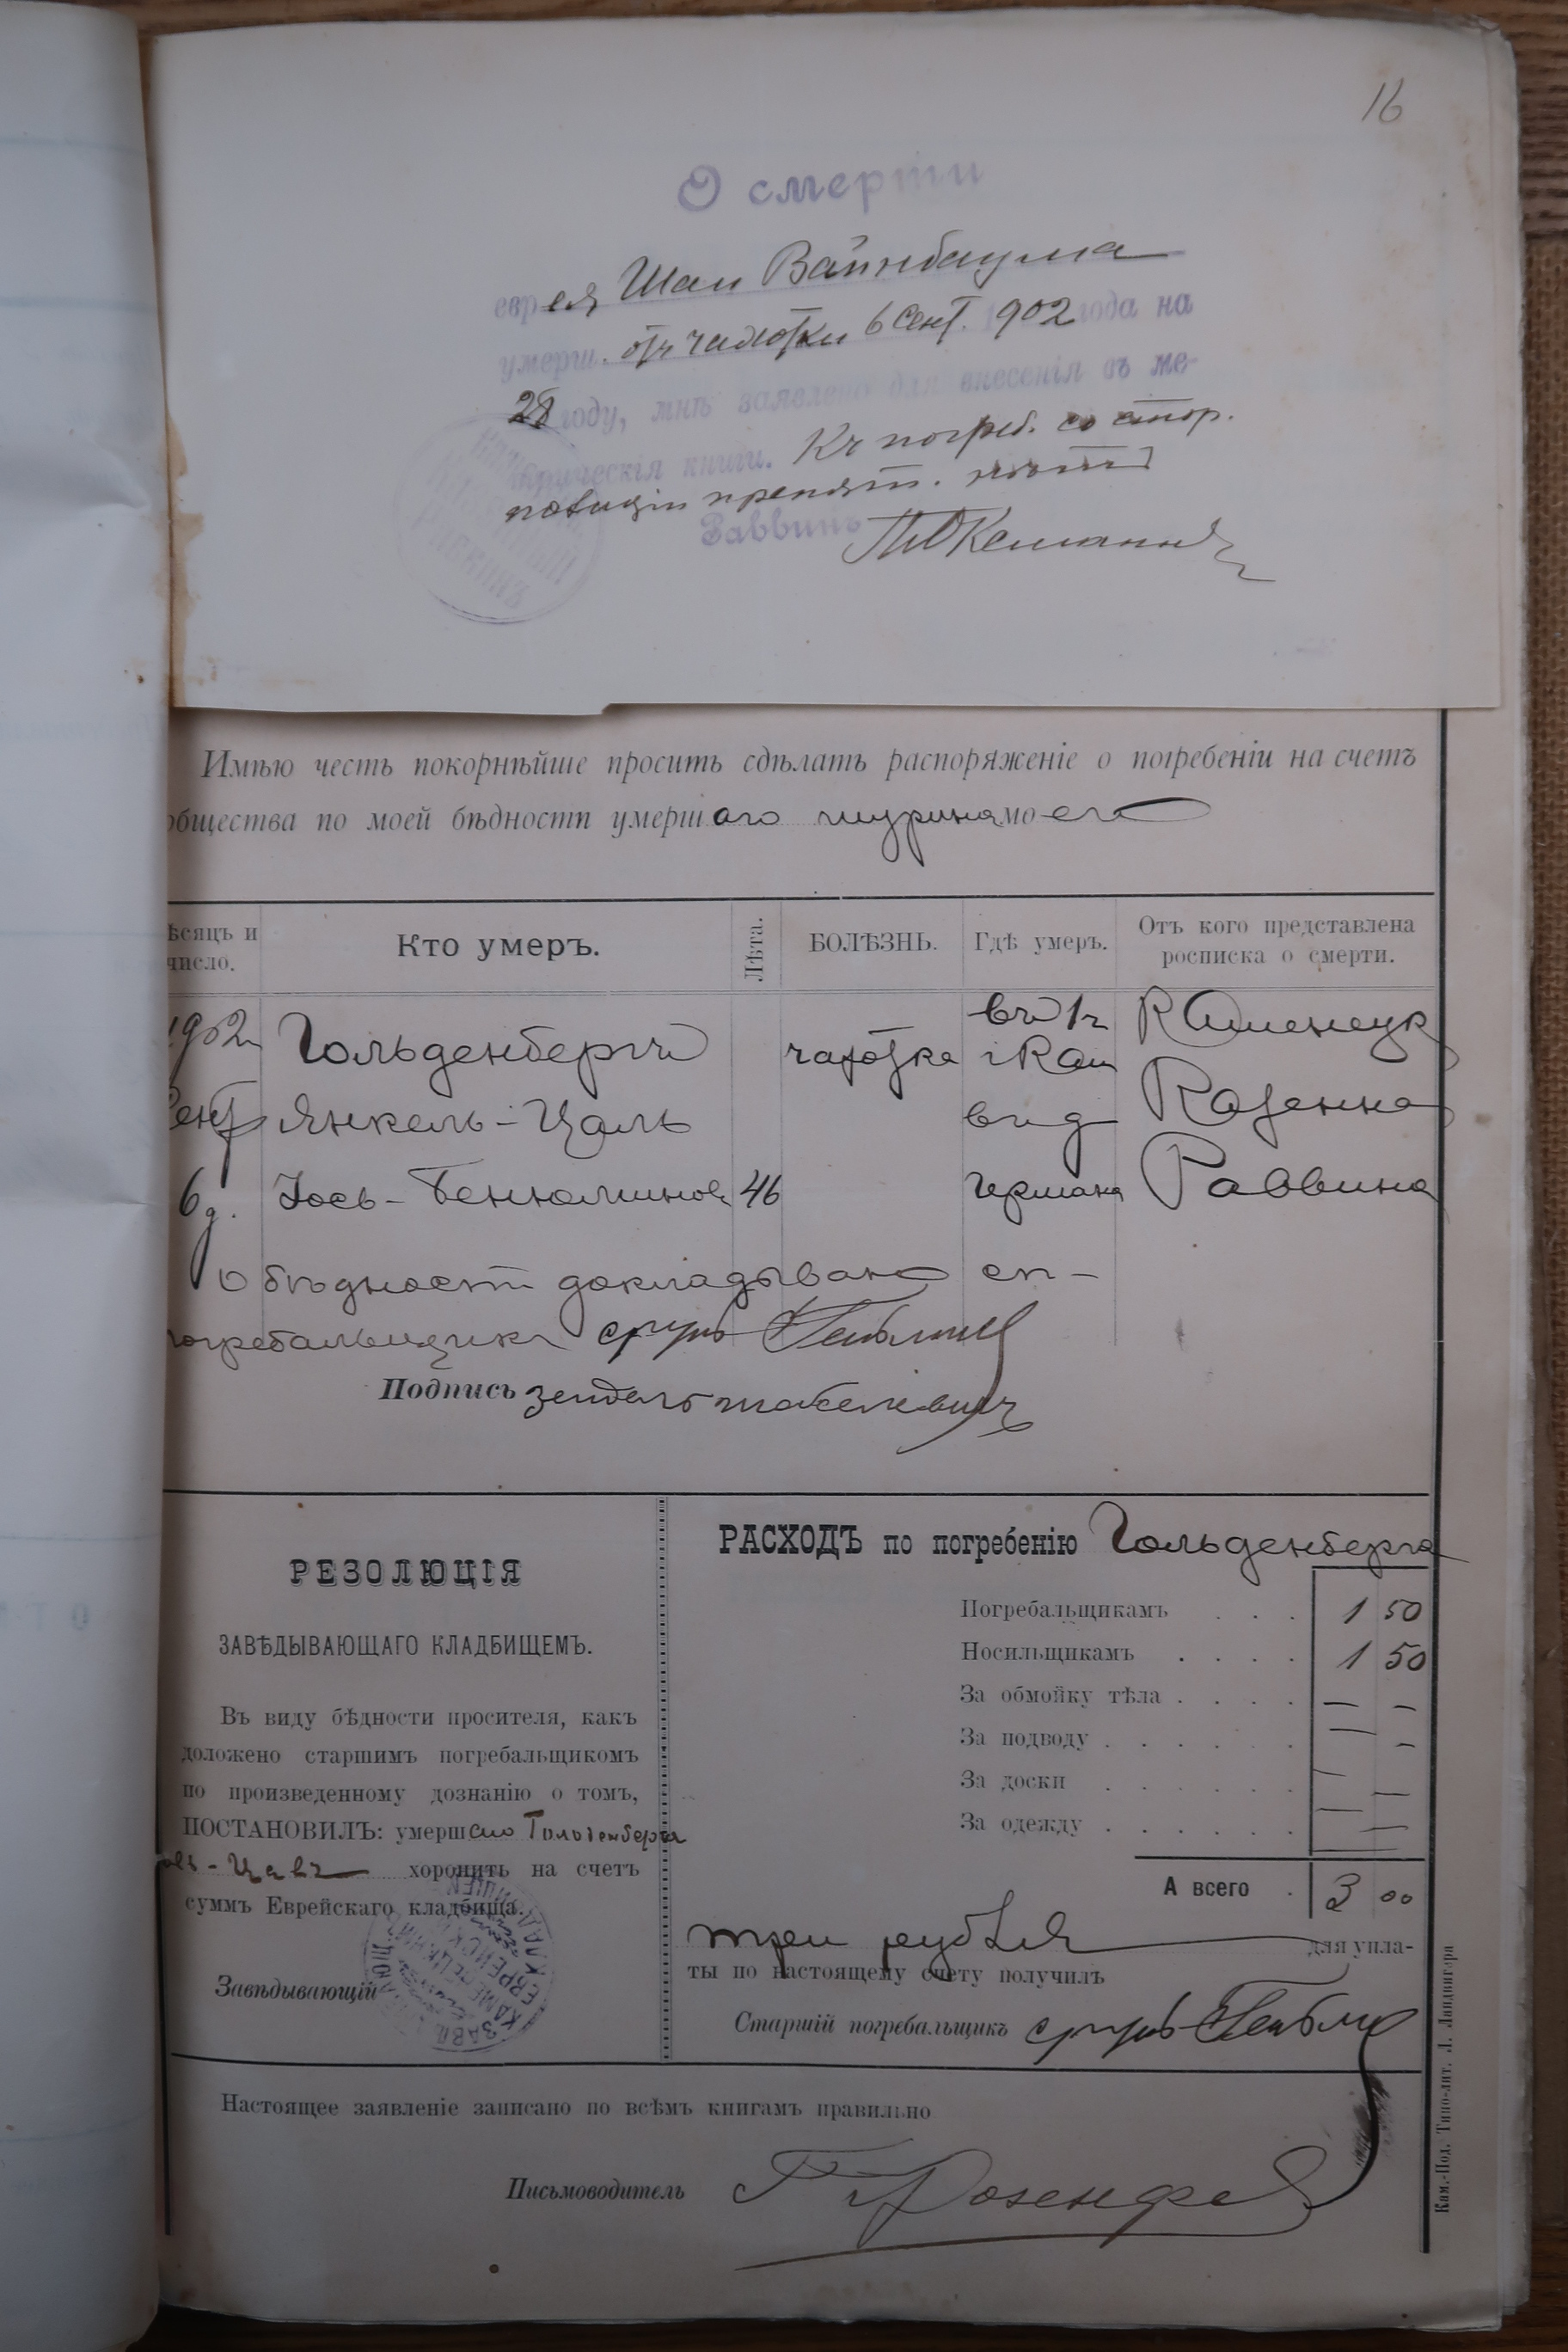 16
О смерти
еврея Шаи Вайнбаума
умерш. отъ чахотки 6 Сент. 1902 года на
28 году, мнѣ заявлено для внесенія въ ме-
трическія книги. Къ погреб. со стор.
полиціи препят. нѣтъ
Раввинъ
Имѣю честь покорнѣйше просить сдѣлать распоряженіе о погребеніи на счетъ
общества по моей бѣдности умершаго шурина моего
ѣсяцъ и число. Кто умеръ. Лѣта. БОЛѢЗНЬ. Гдѣ умеръ. Отъ кого представлена росписка о смерти.
1902 Гольденбергъ чахотка въ 1ч г Кам Каменецк
Сент Янкель-Цаль в д Казенна
6 д. Іось-Бенюминов 46 Германа Раввина
о бѣдности докладывано ст-
погребальщик сруль
Подпись Зейдель
РЕЗОЛЮЦІЯ
ЗАВѢДЫВАЮЩАГО КЛАДБИЩЕМЪ.
Въ виду бѣдности просителя, какъ
доложено старшимъ погребальщикомъ
по произведенному дознанію о томъ,
ПОСТАНОВИЛЪ: умершаго Гольденберга
хоронить на счетъ
суммъ Еврейскаго кладбища.
Завѣдывающій
РАСХОДЪ по погребенію Гольденберга
Погребальщикамъ . . . 1 50
Носильщикамъ . . . . 1 50
За обмойку тѣла . . . . — —
За подводу . . . . . . — —
За доски . . . . . . — —
За одежду . . . . . . — —
А всего . 3 00
три рубля для упла-
ты по настоящему счету получилъ
Старшій погребальщикъ сруль
Настоящее заявленіе записано по всѣмъ книгамъ правильно
Письмоводитель Розенфе
Кам.-Под. Типо-лит. Л. Ландвигера